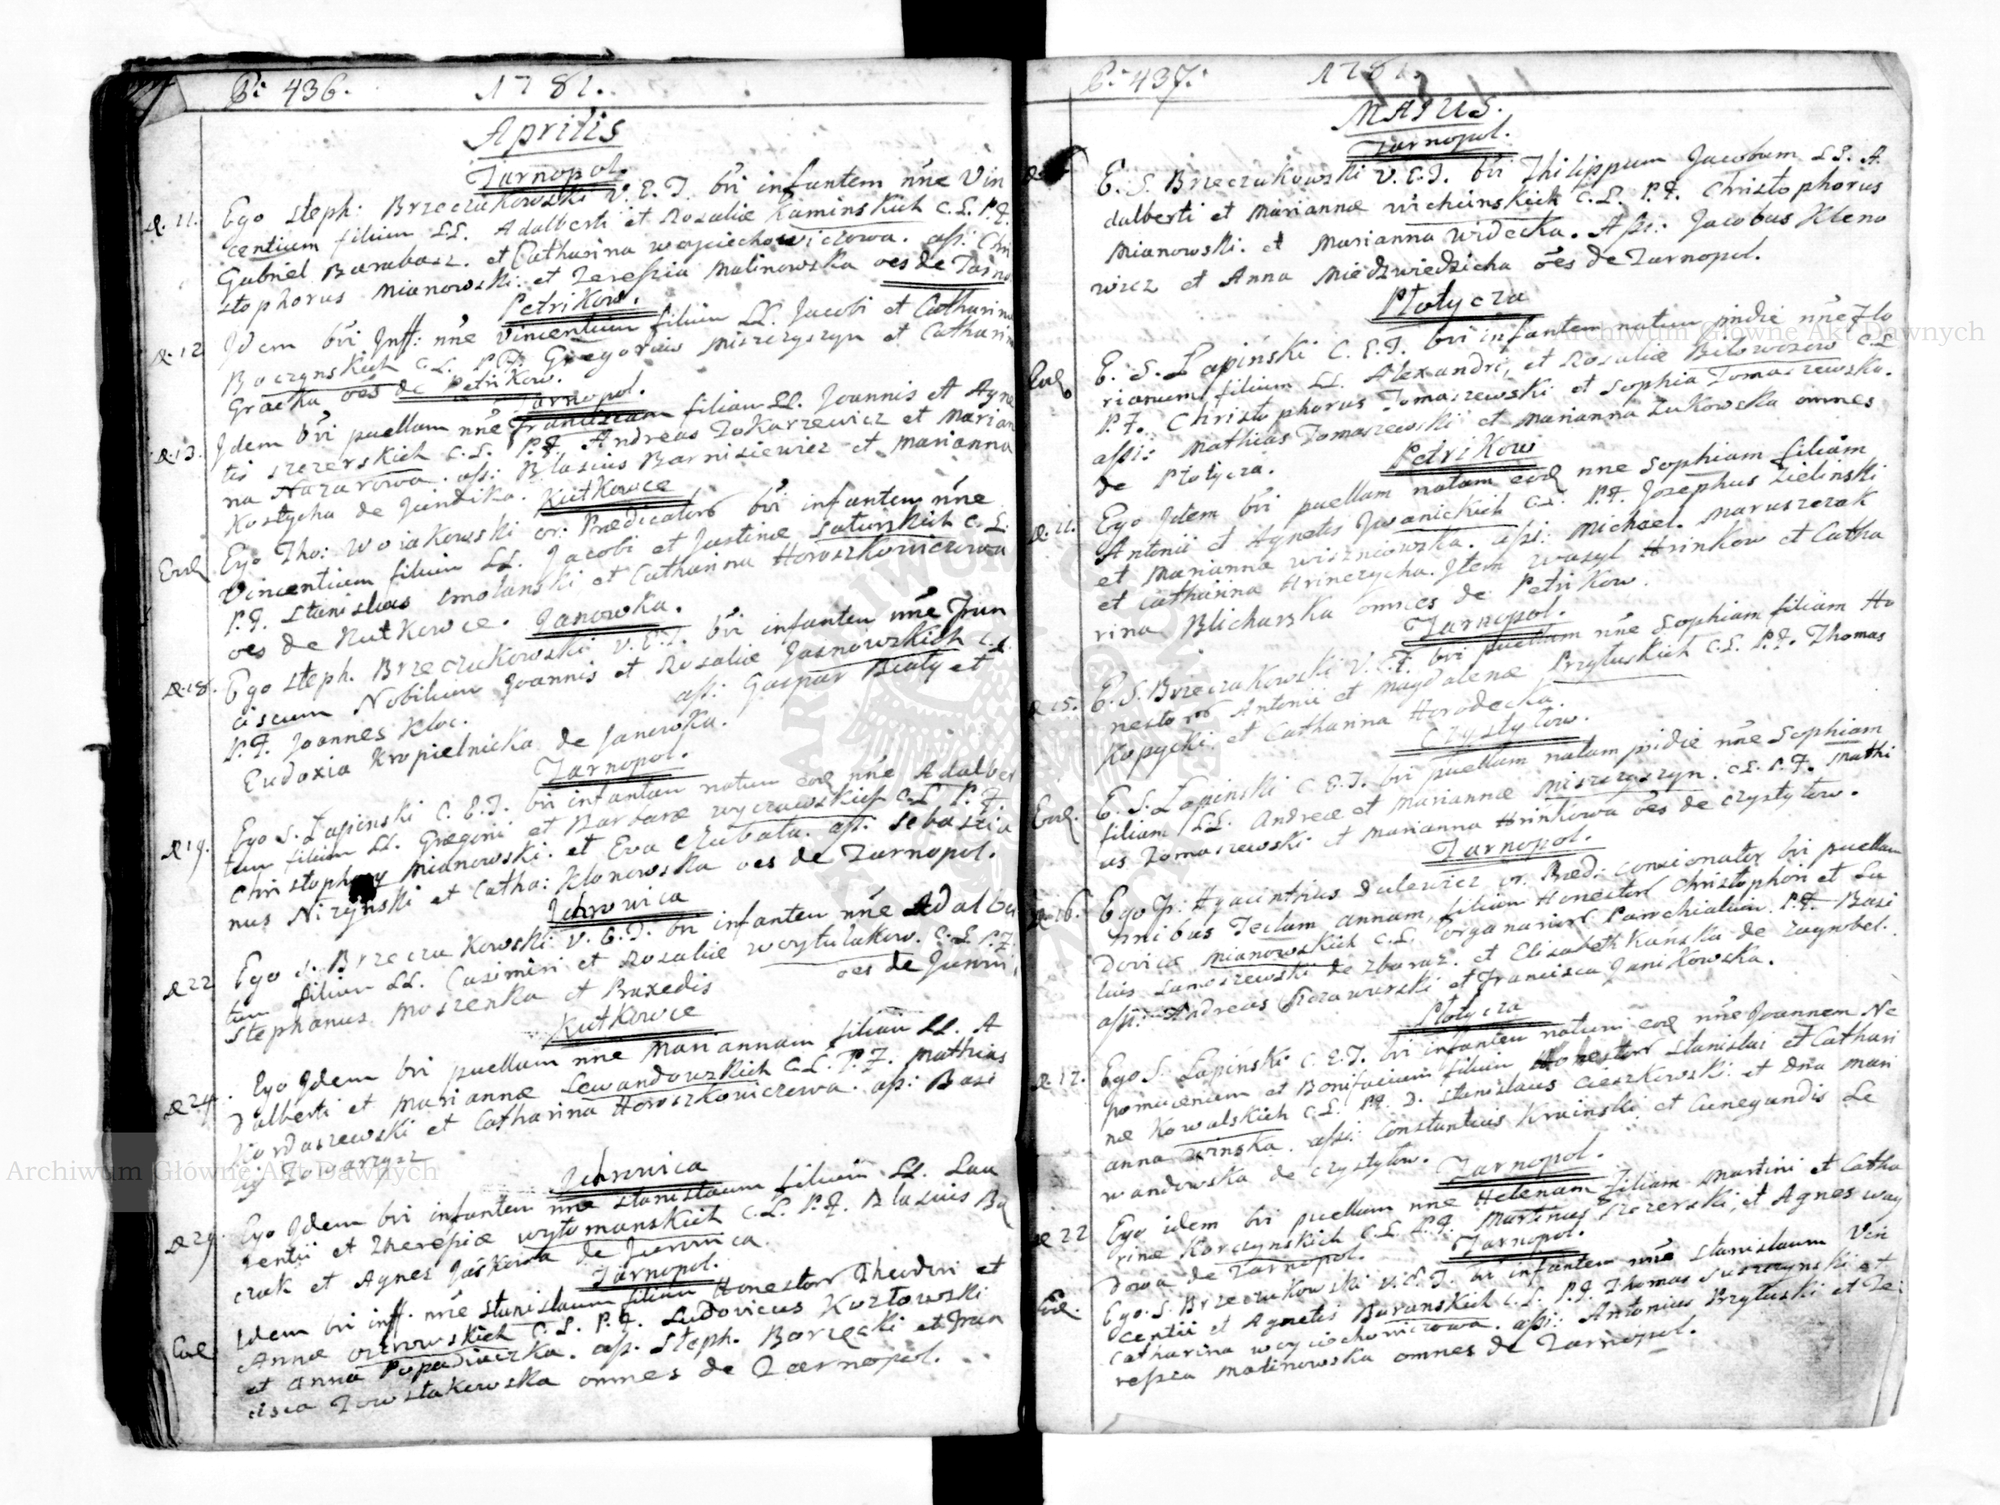 P: 436. 1781.
Aprilis
Tarnopol.
d. 11. Ego Steph: Brzeczukowski V. E. T. bři infantem nñe Vin
centium filium LL. Adalberti et Rosaliæ Kaminskich C. L. P. F.
Gabriel Barabasz. et Catharina Woyciechowiczowa. ass: Chri
stophorus Mianowski. et Tereszia Malinowska oes de Tarno
Petrikow.
d. 12 Idem bři Inff: nñe Vincentium filium LL. Jacobi et Catharinæ
Boczynskich C. L. P. F. Gregorius Miszczyszyn et Catharin
Gracka oes de Petrikow.
Tarnopol.
d. 13. Idem bři puellam nñe Franciscam filiam LL. Joannis et Agne
tis Szczerskich C. L. P. F. Andreas Tokarzewicz et Marian
na Nazarowa. ass: Blasius Barnisiewicz et Marianna
Kostycha de
Kutkowce
Eod Ego Tho: Woiakowski or: Prædicator bři infantem nñe
Vincentium filium LL. Jacobi et Justinæ Saturskich C. L.
P. F. Stanislaus Smolanski et Catharina Horoszkowiczowa
oes de Kutkowce.
Janowka.
d. 18. Ego Steph. Brzeczukowski V. E. T. bři infantem nñe Fran
ciscum Nobilium Joannis et Rosaliæ Jasnowskich C. L.
P. F. Joannes Kloc. ass: Gaspar Bialy et
Eudoxia Kropielnicka de Janowka.
Tarnopol.
d 19. Ego S. Lapinski C. E. T. bři infantem natum eod nñe Adalber
tum filium LL. Gregorii et Barbaræ Wyczawskich C. L. P. F.
Christophory Mianowski. et Eva Czubata. ass. Sebastia
nus Nizynski et Catha: Klonowska oes de Tarnopol.
d 22 Ego S. Brzeczukowski V. E. T. bři infantem nñe Adalber
tum filium LL. Casimiri et Rosaliæ Woytulakow. C. L. P. F.
Stephanus Moszenka et Praxedis oes de
Kutkowce
d 24. Ego Idem bři puellam nñe Mariannam filiam LL. A
dalberti et Mariannæ Lewandowskich C. L. P. F. Mathias
Kordaszewski et Catharina Horoszkowiczowa. ass: Basi
d 29. Ego Idem bři infantem nñe Stanislaum filium LL. Lau
rentii et Theresiæ Wytomanskich C. L. P. F. Blasius
czak et Agnes Jaskowa de
Tarnopol.
Eod Idem bři inff. nñe Stanislaum filium Honestor Theodori et
Annæ C. L. P. F. Ludovicus Kozlowski
et Anna Popadiuczka. ass. Steph. Borzęcki et Fran
cisca omnes de Tarnopol.
P: 437. 1781.
MAJUS.
Tarnopol.
E. S. Brzeczukowski V. E. T. bři Philippum Jacobum LL. A
dalberti et Mariannæ Wichinskich C. L. P. F. Christophorus
Mianowski. et Marianna Widecka. Ass: Jacobus Kleno
wicz et Anna Miedzwiedzicha oes de Tarnopol.
Płotycza
Eod E. S. Lapiński C. E. T. bři infantem natum pridie nñe Flo
rianum filium LL. Alexandri, et Rosaliæ Bilowszow C L
P. F. Christophorus Tomaszewski et Sophia Tomaszewska.
assi: Mathias Tomaszewski et Marianna Zukowska omnes
de Płotycza.
Petrikow
d. 11. Ego Idem bři puellam natam eod nñe Sophiam filiam
Antonii et Agnetis Iwanickich C. L. P. F. Josephus Zielinski
et Marianna Wiszniowska. assi: Michael. Maruszczak
et Catharina Hrinczycha. Item Wasyl Hrinkow et Catha
rina Blicharska omnes de Petrikow.
Tarnopol.
d 15. E. S. Brzeczukowski V. E. T. bři puellam nñe Sophiam filiam Ho
nestor Antonii et Magdalenæ Przyłuskich C. L. P. F. Thomas
Kopycki, et Catharina Horodecka.
Czystyłow.
Eod. E. S. Lapinski C. E. T. bři puellam natam pridie nñe Sophiam
filiam LL. Andreæ et Mariannæ Miszczyszyn. C. L. P. F. Mathi
as Tomaszewski et Marianna Hrinkowa oes de Czystyłow.
Tarnopol.
d 16. Ego P. Hyacinthus Dulewicz or. Præd: concionator bři puellam
nnibus Teclam Annam, filiam Honestor Christophori et Lu
dovicæ Mianowskich C. L. organarior Parochialium. P. F. Basi
lius de Zbaraz. et Elisabeth Kańska de Zagrobel.
assi: Andreas et Francisca Janikowska.
Płotycza
d. 17. Ego S. Lapiński C. E. T. bři infantem natum eod nñe Joannem Ne
pomucenum et Bonifacium filium Honestor Stanislai et Cathari
næ Kowalskich C. L. P. F. D. Stanislaus Cieszkowski et Dna Mari
anna Winska. assi: Constantius Krainski et Cunegundis Le
wandowska de Czystyłow.
Tarnopol.
d 22 Ego idem bři puellam nñe Helenam filiam Martini et Catha
rinæ Korczynskich C L C. P. F. Martinus Szczerski, et Agnes Way
dowa de Tarnopol.
Tarnopol.
Eod. Ego S. Brzeczukowski V. E. T. bři infantem nñe Stanislaum Vin
centii et Agnetis Baranskich C. L. P. F. Thomas Suszczynski et
Catharina Woyciechowiczowa. assi: Antonius Przyłuski et Te
reszia Malinowska omnes de Tarnopol.
Archiwum Główne Akt Dawnych
Archiwum Główne Akt Dawnych